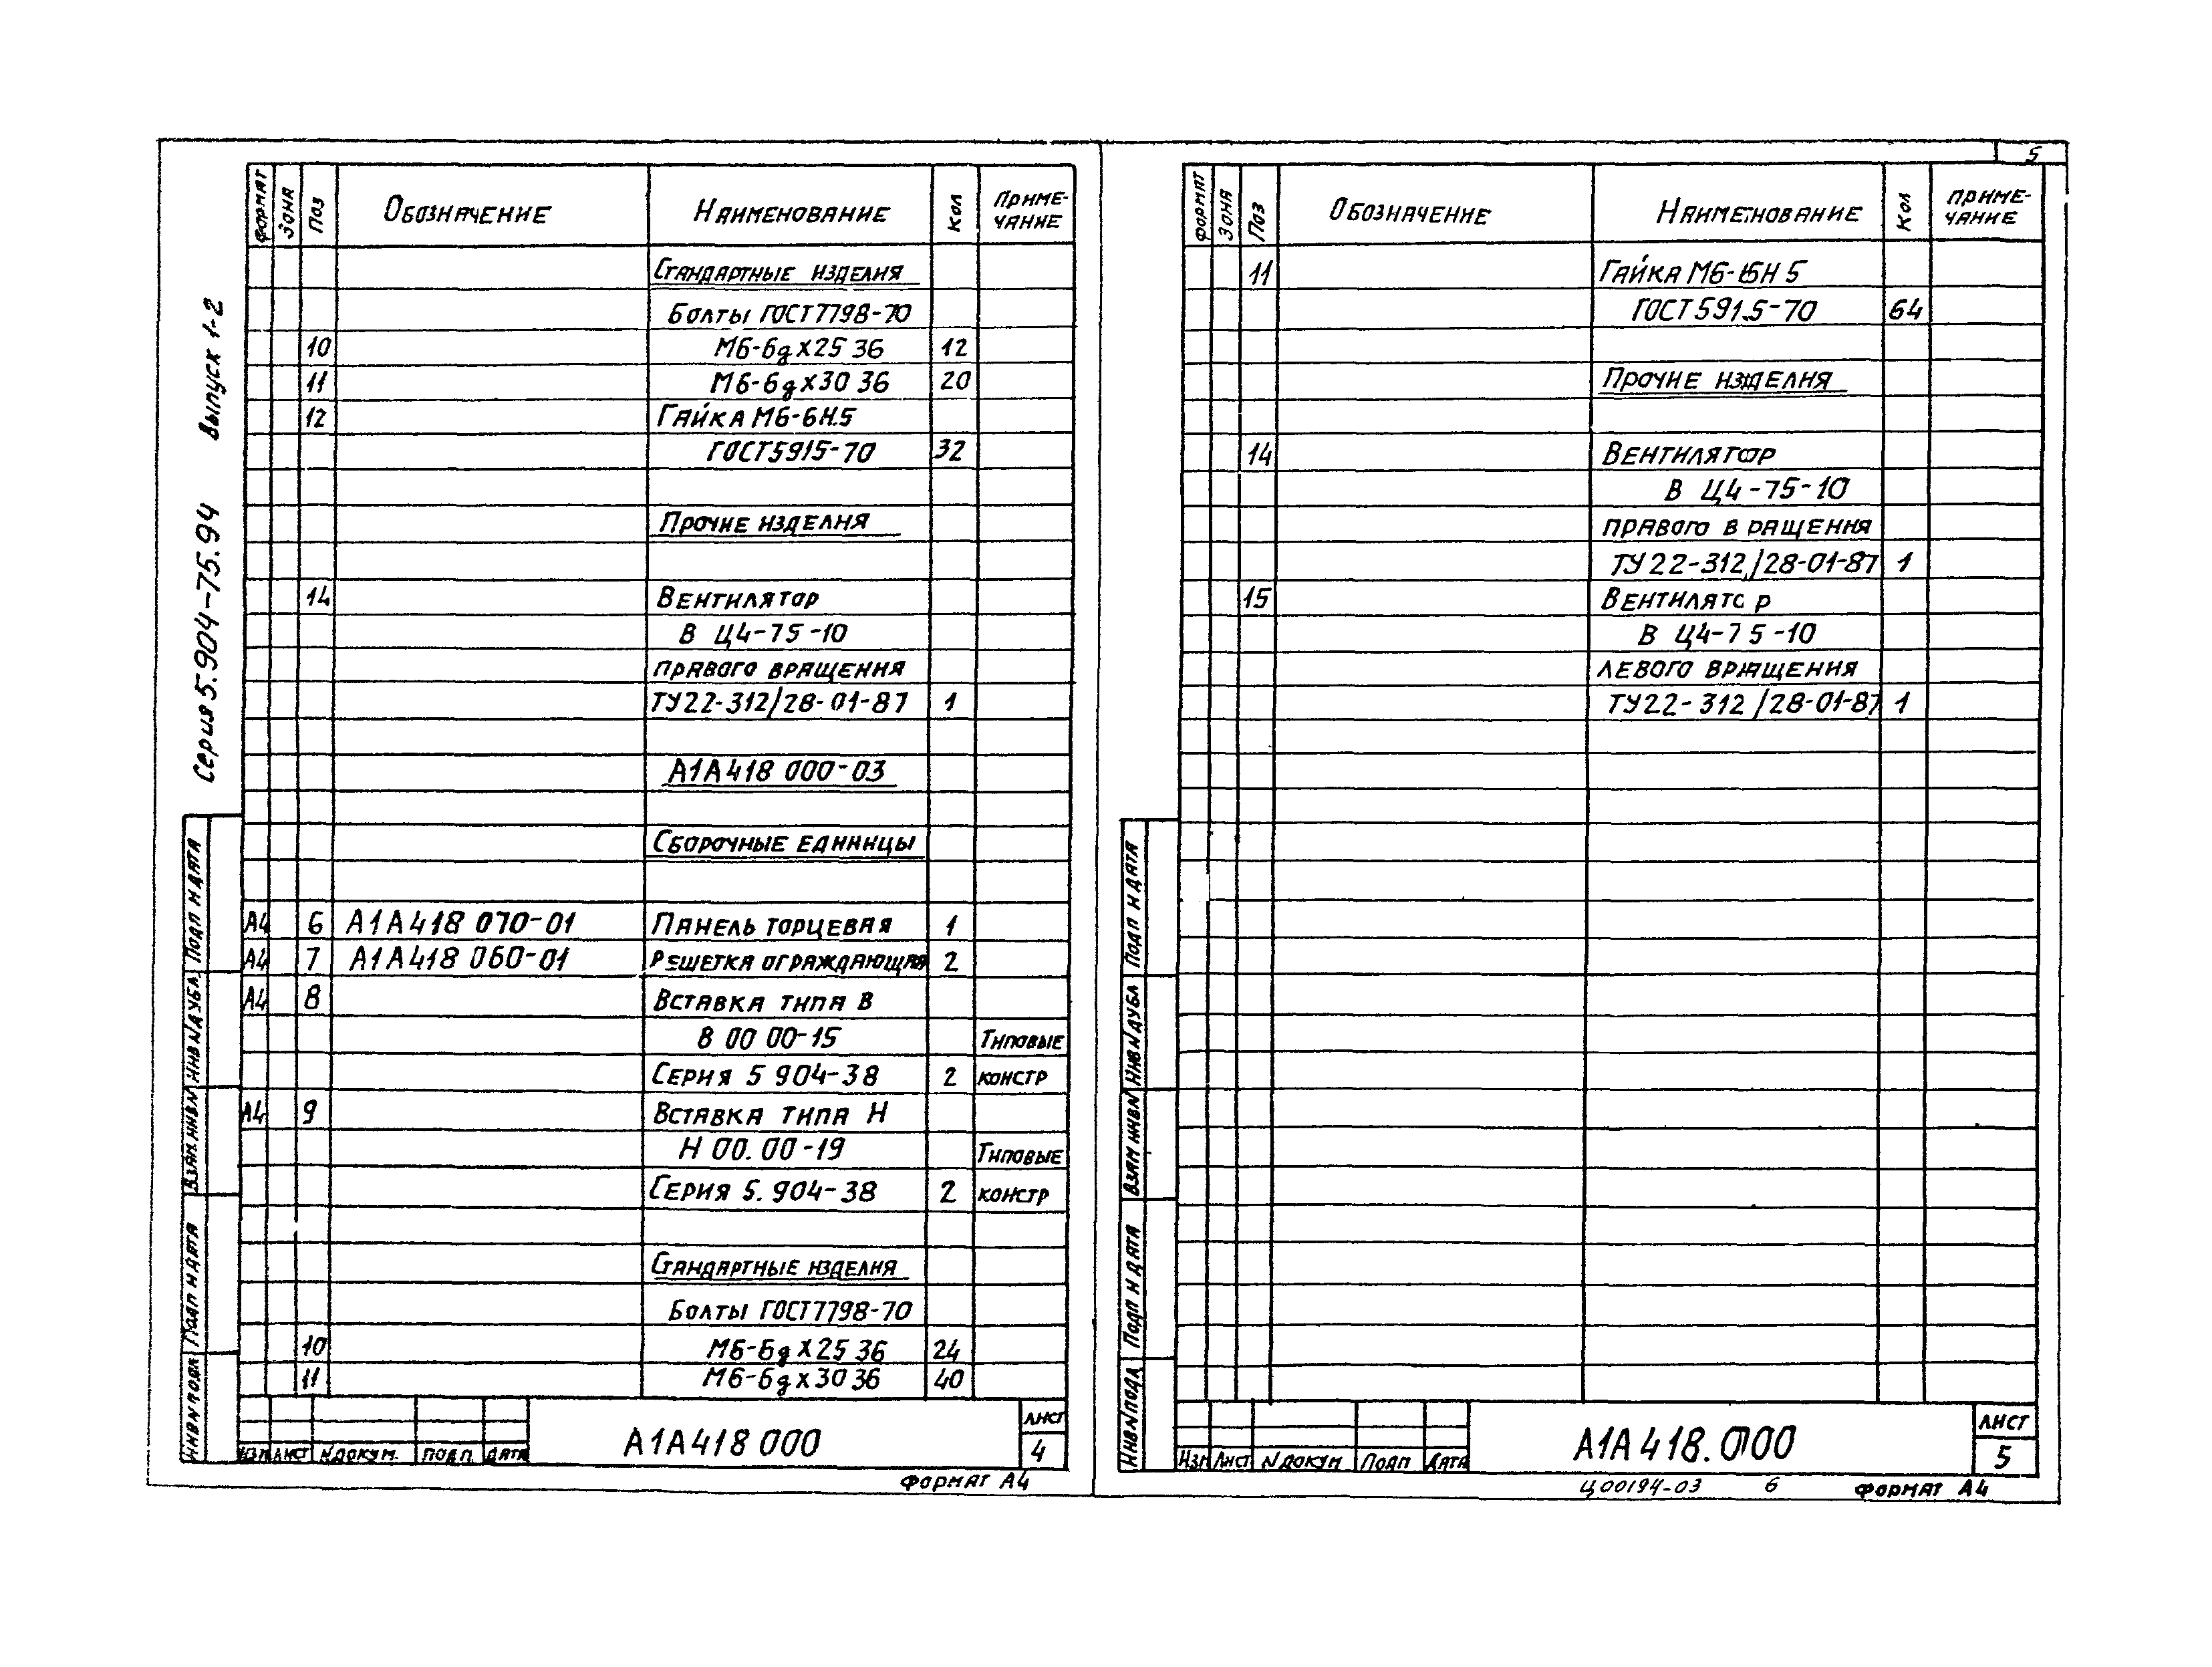 5
Серия 5.904-75.94 Выпуск 1-2
Формат Зона Поз Обозначение Наименование Кол Приме-
чание
Стандартные изделия
Болты ГОСТ7798-70
10 М6-6gx25 36 12
11 М6-6gx30 36 20
12 Гайка М6-6Н.5
ГОСТ5915-70 32
Прочие изделия
14 Вентилятор
В Ц4-75-10
правого вращения
ТУ22-312/28-01-87 1
А1А418 000-03
Сборочные единицы
А4 6 А1А418 070-01 Панель торцевая 1
А4 7 А1А418 060-01 Решетка ограждающая 2
А4 8 Вставка типа В
В 00 00-15 Типовые
Серия 5 904-38 2 констр
А4 9 Вставка типа Н
Н 00.00-19 Типовые
Серия 5.904-38 2 констр
Стандартные изделия
Болты ГОСТ7798-70
10 М6-6gx25 36 24
11 М6-6gx30 36 40
Подп и дата
Инв N дубл
Взам инв N
Подп и дата
Инв N подл
Изм Лист N докум. Подп. Дата
А1А418 000
Лист
4
Формат А4
Формат Зона Поз Обозначение Наименование Кол Приме-
чание
11 Гайка М6-6Н 5
ГОСТ 5915-70 64
Прочие изделия
14 Вентилятор
В Ц4-75-10
правого вращения
ТУ22-312/28-01-87 1
15 Вентилятор
В Ц4-75-10
левого вращения
ТУ22-312/28-01-87 1
Подп и дата
Инв N дубл
Взам инв N
Подп и дата
Инв N подл
Изм Лист N докум Подп Дата
А1А418.000
Лист
5
Ц00194-03 6 Формат А4